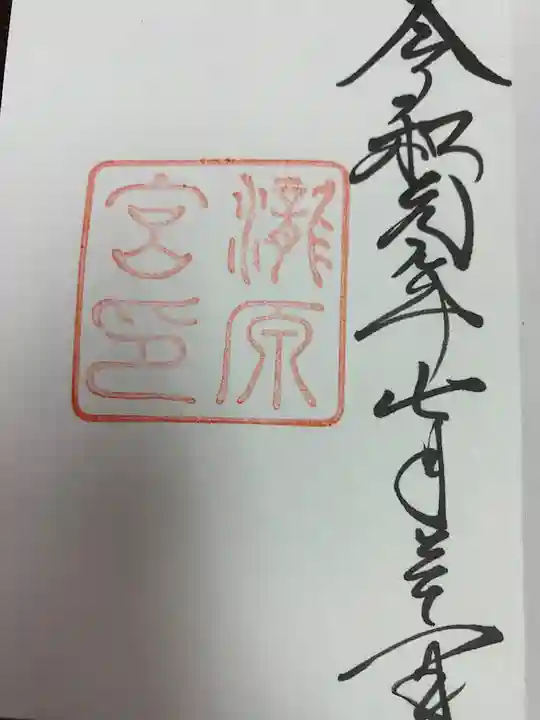 令和元年七月
瀧原
宮印